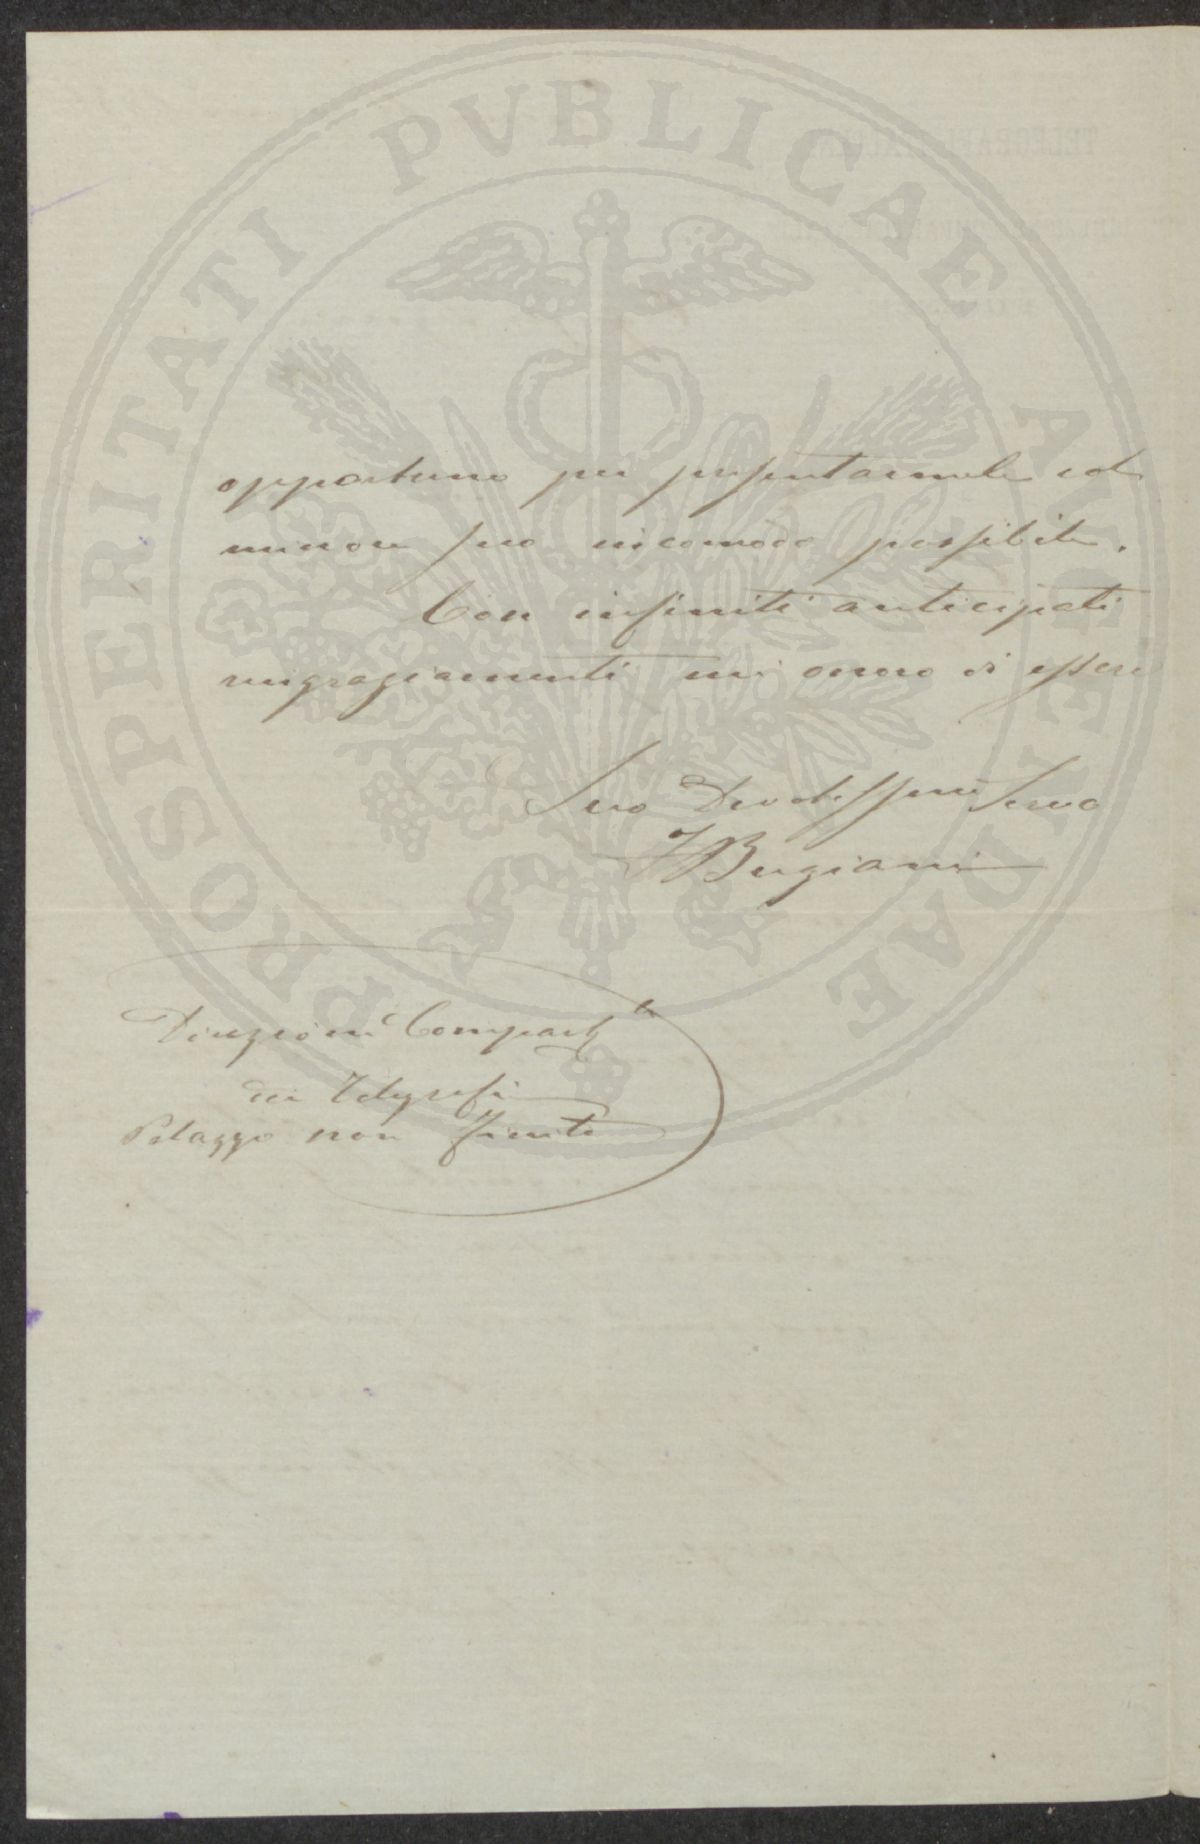 PROSPERITATI PVBLICAE AVGENDAE
opportuno per presentarmele col
minore suo incomodo possibile.
Con infiniti anticipati
ringraziamenti mi onoro di essere
Suo Devotissimo Servo
Bugiani
Direzione Compart.le
dei Telegrafi
Palazzo non finito